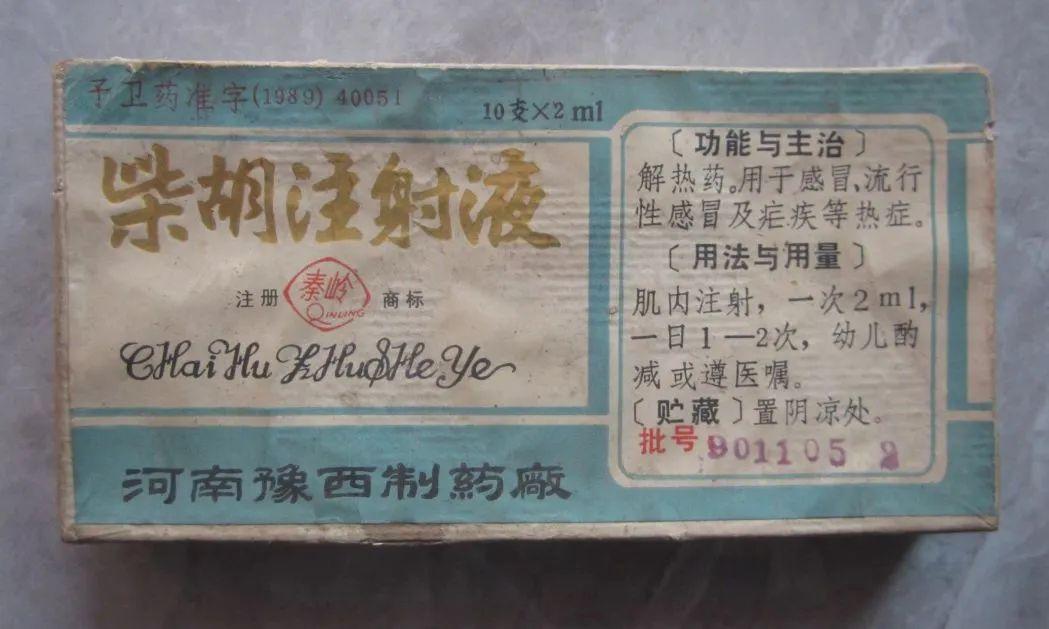 予卫药准字(1989) 40051
10支×2ml
柴胡注射液
注册 秦岭 商标
QINLING
CHai Hu ZHuSHe Ye
河南豫西制药廠
〔功能与主治〕
解热药。用于感冒、流行
性感冒及疟疾等热症。
〔用法与用量〕
肌内注射，一次2ml，
一日1—2次，幼儿酌
减或遵医嘱。
〔贮藏〕置阴凉处。
批号 901105 2